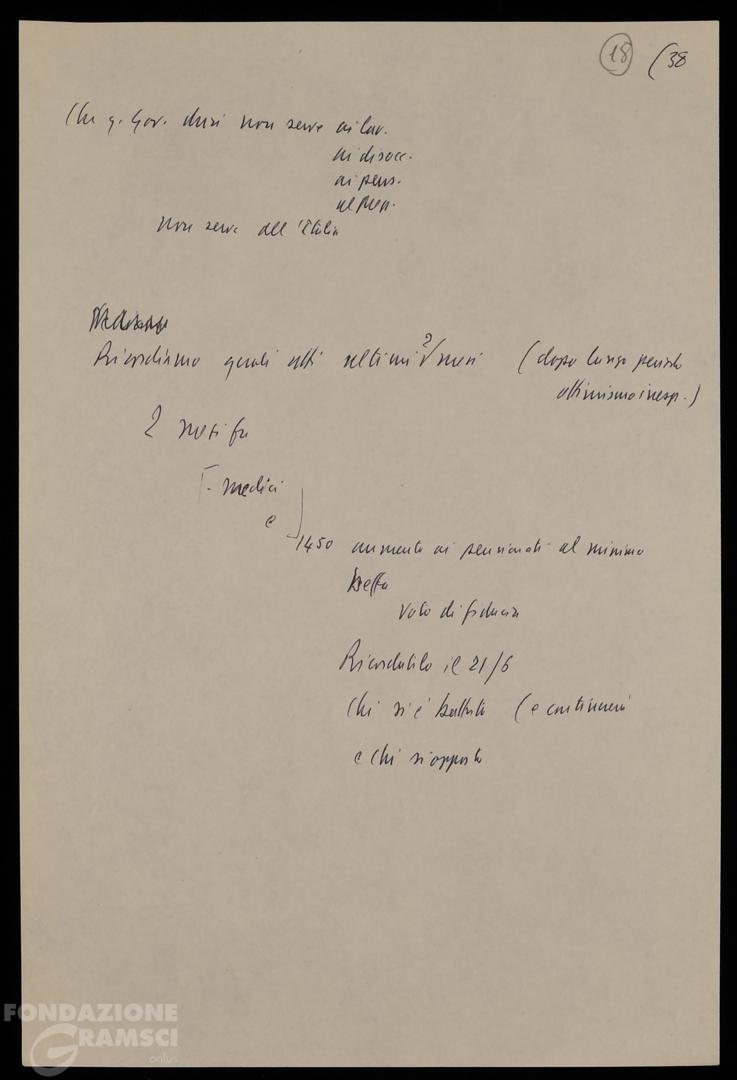 18 (38
Che q. Gov. dissi non serve ai lav.
ai disocc.
ai pens.
al Mezz.
Non serve all'Italia
Ricordiamo quali atti ultimi 2 mesi (dopo lungo periodo
ottimismo inesp.)
2 mesi fa
- medici
e
1450 aumento ai pensionati al minimo
beffa
voto di fiducia
Ricordatelo il 21/6
Chi si è battuto (e continuerà
e chi si opposto
FONDAZIONE
GRAMSCI
onlus